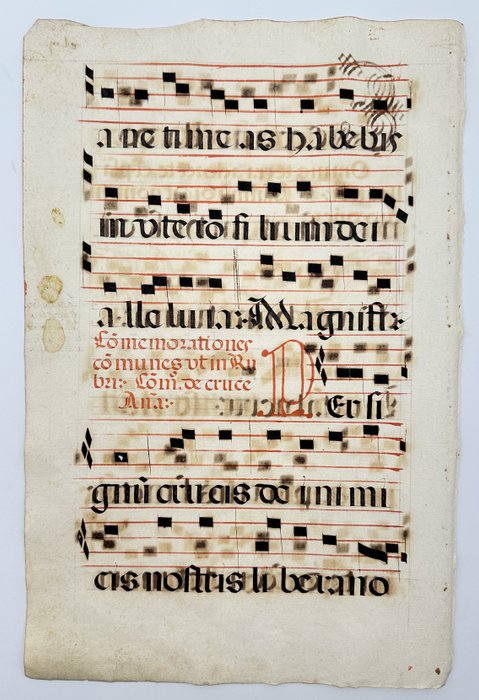 a ne timeas habebis
in vtero filium dei
alleluia: Magnifi:
Cōmemorationes
cōmunes vt in Ru
bri: Cōm. de cruce
Anā:
PEr si
gnū crucis de inimi
cis nostris libera no